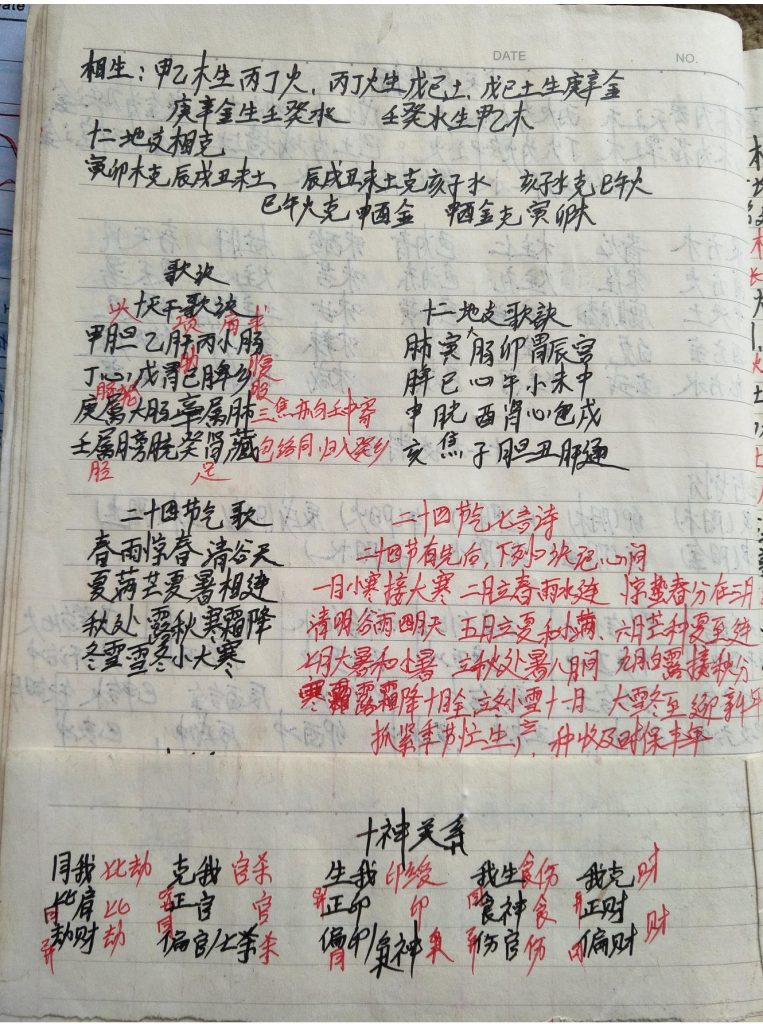 DATE NO.
相生：甲乙木生丙丁火，丙丁火生戊己土，戊己土生庚辛金
庚辛金生壬癸水 壬癸水生甲乙木
十二地支相克
寅卯木克辰戌丑未土， 辰戌丑未土克亥子水 亥子水克巳午火
巳午火克申酉金 申酉金克寅卯木
歌诀
十天干歌诀
头 项 肩
甲胆乙肝丙小肠
丁心戊胃己脾乡
庚属大肠辛属肺 三焦亦向壬中寄
壬属膀胱癸肾藏 包络同归入癸乡
足
十二地支歌訣
肺寅大肠卯胃辰宫
脾巳心午小未中
申胱酉肾心包戌
亥焦子胆丑肝通
二十四节气歌
春雨惊春清谷天
夏满芒夏暑相连
秋处露秋寒霜降
冬雪雪冬小大寒
二十四节气七言诗
二十四节有先后，下列口诀记心间
一月小寒接大寒 二月立春雨水连 惊蛰春分在三月
清明谷雨四月天 五月立夏和小满、六月芒种夏至连
七月大暑和小暑 立秋处暑八月间 九月白露接秋分
寒露霜降十月全 立冬小雪十一月 大雪冬至迎新年
抓紧季节忙生产，种收及时保丰年
十神关系
同我 比劫 克我 官杀 生我 印绶 我生 食伤 我克 财
比肩 比 正官 官 正印 印 食神 食 正财 财
劫财 劫 偏官/七杀 杀 偏印/枭神 枭 伤官 伤 偏财